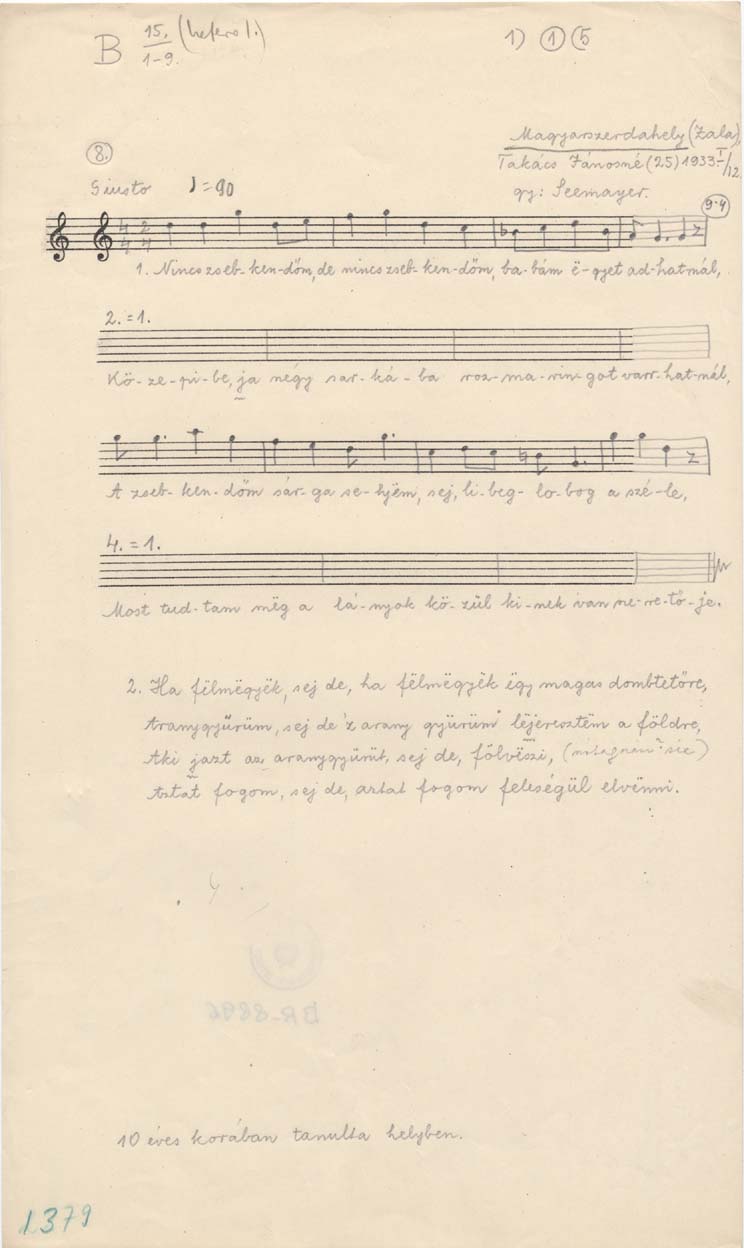 B 15. (hetero l.) 1) ① (5
1-9.
Magyarszerdahely (Zala),
8. Takács Jánosné (25) 1933. I/12.
Giusto ♩=90 gy: Seemayer.
9-4
4 2
4 4
1. Nincs zseb-ken-dőm, de nincs zseb-ken-dőm, ba-bám ë-gyet ad-hat-nál,
2. = 1.
Kö-ze-pi-be, ja négy sar-ká-ba roz-ma-rin-got varr-hat-nál,
A zseb-ken-dőm sár-ga se-lyëm, sej, li-beg-lo-bog a szé-le,
4. = 1.
Most tud-tam mëg a lá-nyok kö-zül ki-nek van sze-re-tő-je.
2. Ha fëlmëgyëk, sej de, ha fëlmëgyëk ëgy magas dombtetőre,
Aranygyűrüm, sej de 'z arany gyürüm lëjeresztëm a földre,
Aki jazt az aranygyürüt, sej de, fölvëszi,
Aztat fogom, sej de, aztat fogom feleségül elvënni.
BR-8896
10 éves korában tanulta helyben.
1379